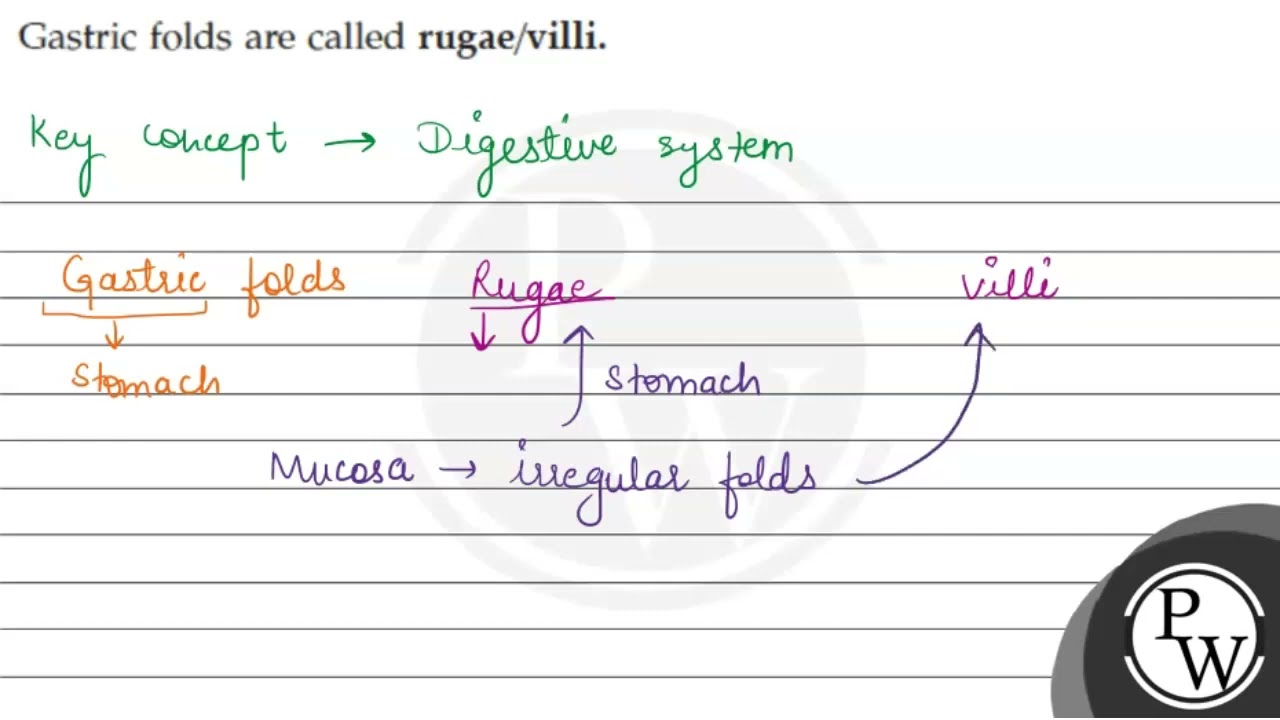 Gastric folds are called rugae/villi.
Key concept → Digestive system
Gastric folds Rugae Villi
Stomach
Stomach
Mucosa → irregular folds
PW
PW